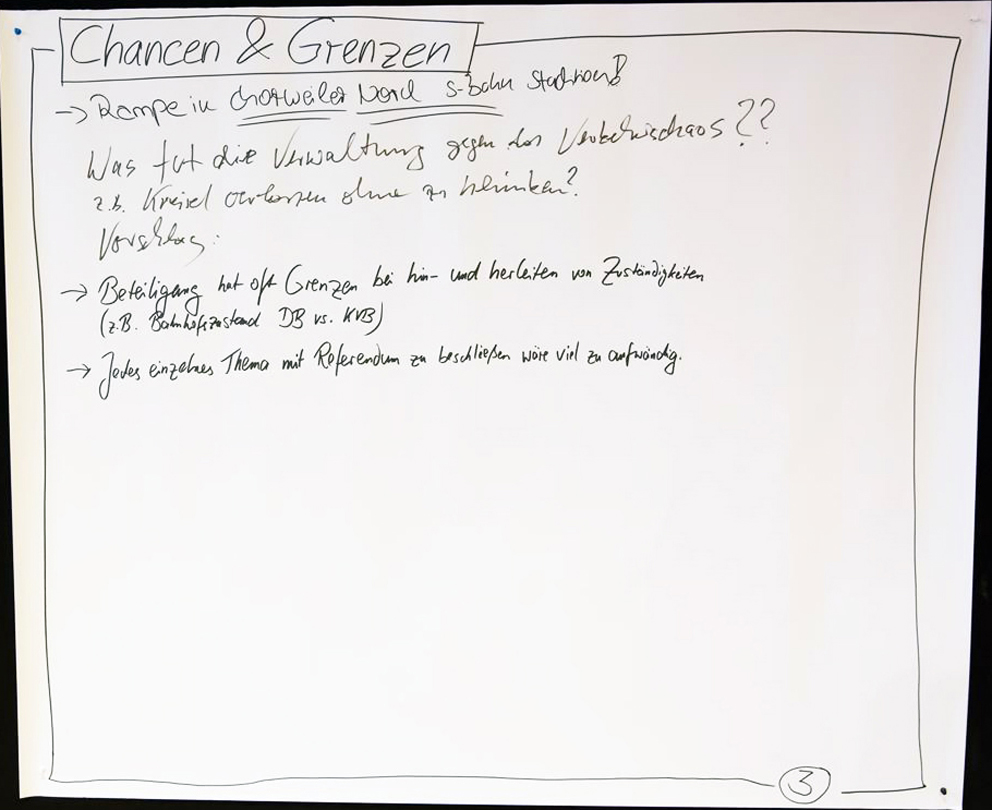 Chancen & Grenzen
→ Rampe in Chorweiler Nord S-Bahn
Was tut die Verwaltung gegen das Verkehrschaos??
z.b. Kreisel verlassen ohne zu blinken?
Vorschlag:
→ Beteiligung hat oft Grenzen bei hin- und herleiten von Zuständigkeiten
(z.B. Bahnhofszustand DB vs. KVB)
→ Jedes einzelnes Thema mit Referendum zu beschließen wäre viel zu aufwändig.
3